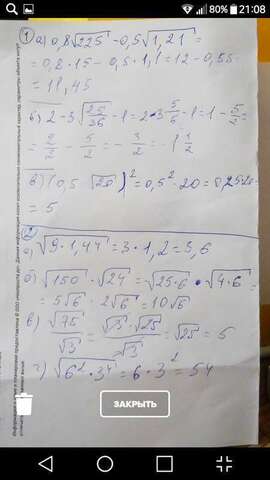 80% 21:08
① а) 0,8√225 - 0,5√1,21 =
= 0,8 · 15 - 0,5 · 1,1 = 12 - 0,55
= 11,45
б) 2 - 3√25/36 - 1 = 2 - 3 · 5/6 - 1 = 1 - 5/2 =
= 2/2 - 5/2 = - 3/2 = - 1 1/2
в) (0,5 √20)² = 0,5² · 20 = 0,25 · 20
= 5
②
а) √9 · 1,44 = 3 · 1,2 = 3,6
б) √150 · √24 = √25·6 · √4·6 =
= 5√6 · 2√6 = 10√6
в) √75/√3 = √3 · √25/√3 = √25 = 5
г) √6² · 3⁴ = 6 · 3² = 54
ЗАКРЫТЬ